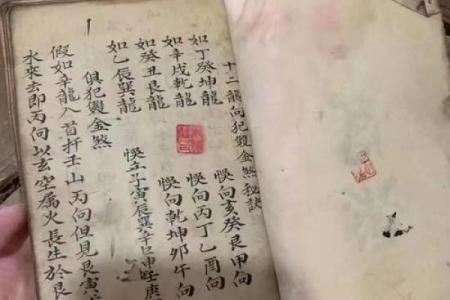 十二龍向犯雙金煞秘訣
如丁癸坤龍 悮向亥癸艮甲向
如辛戌乾龍 悮向丙丁乙酉向
如癸丑艮龍 悮向乾坤卯午向
如乙辰巽龍 悮立寅辰巽辛申壬庚
俱犯雙金煞
假如辛龍入首扦壬山丙向但見艮寅
水來去即丙向以玄空属火長生於艮